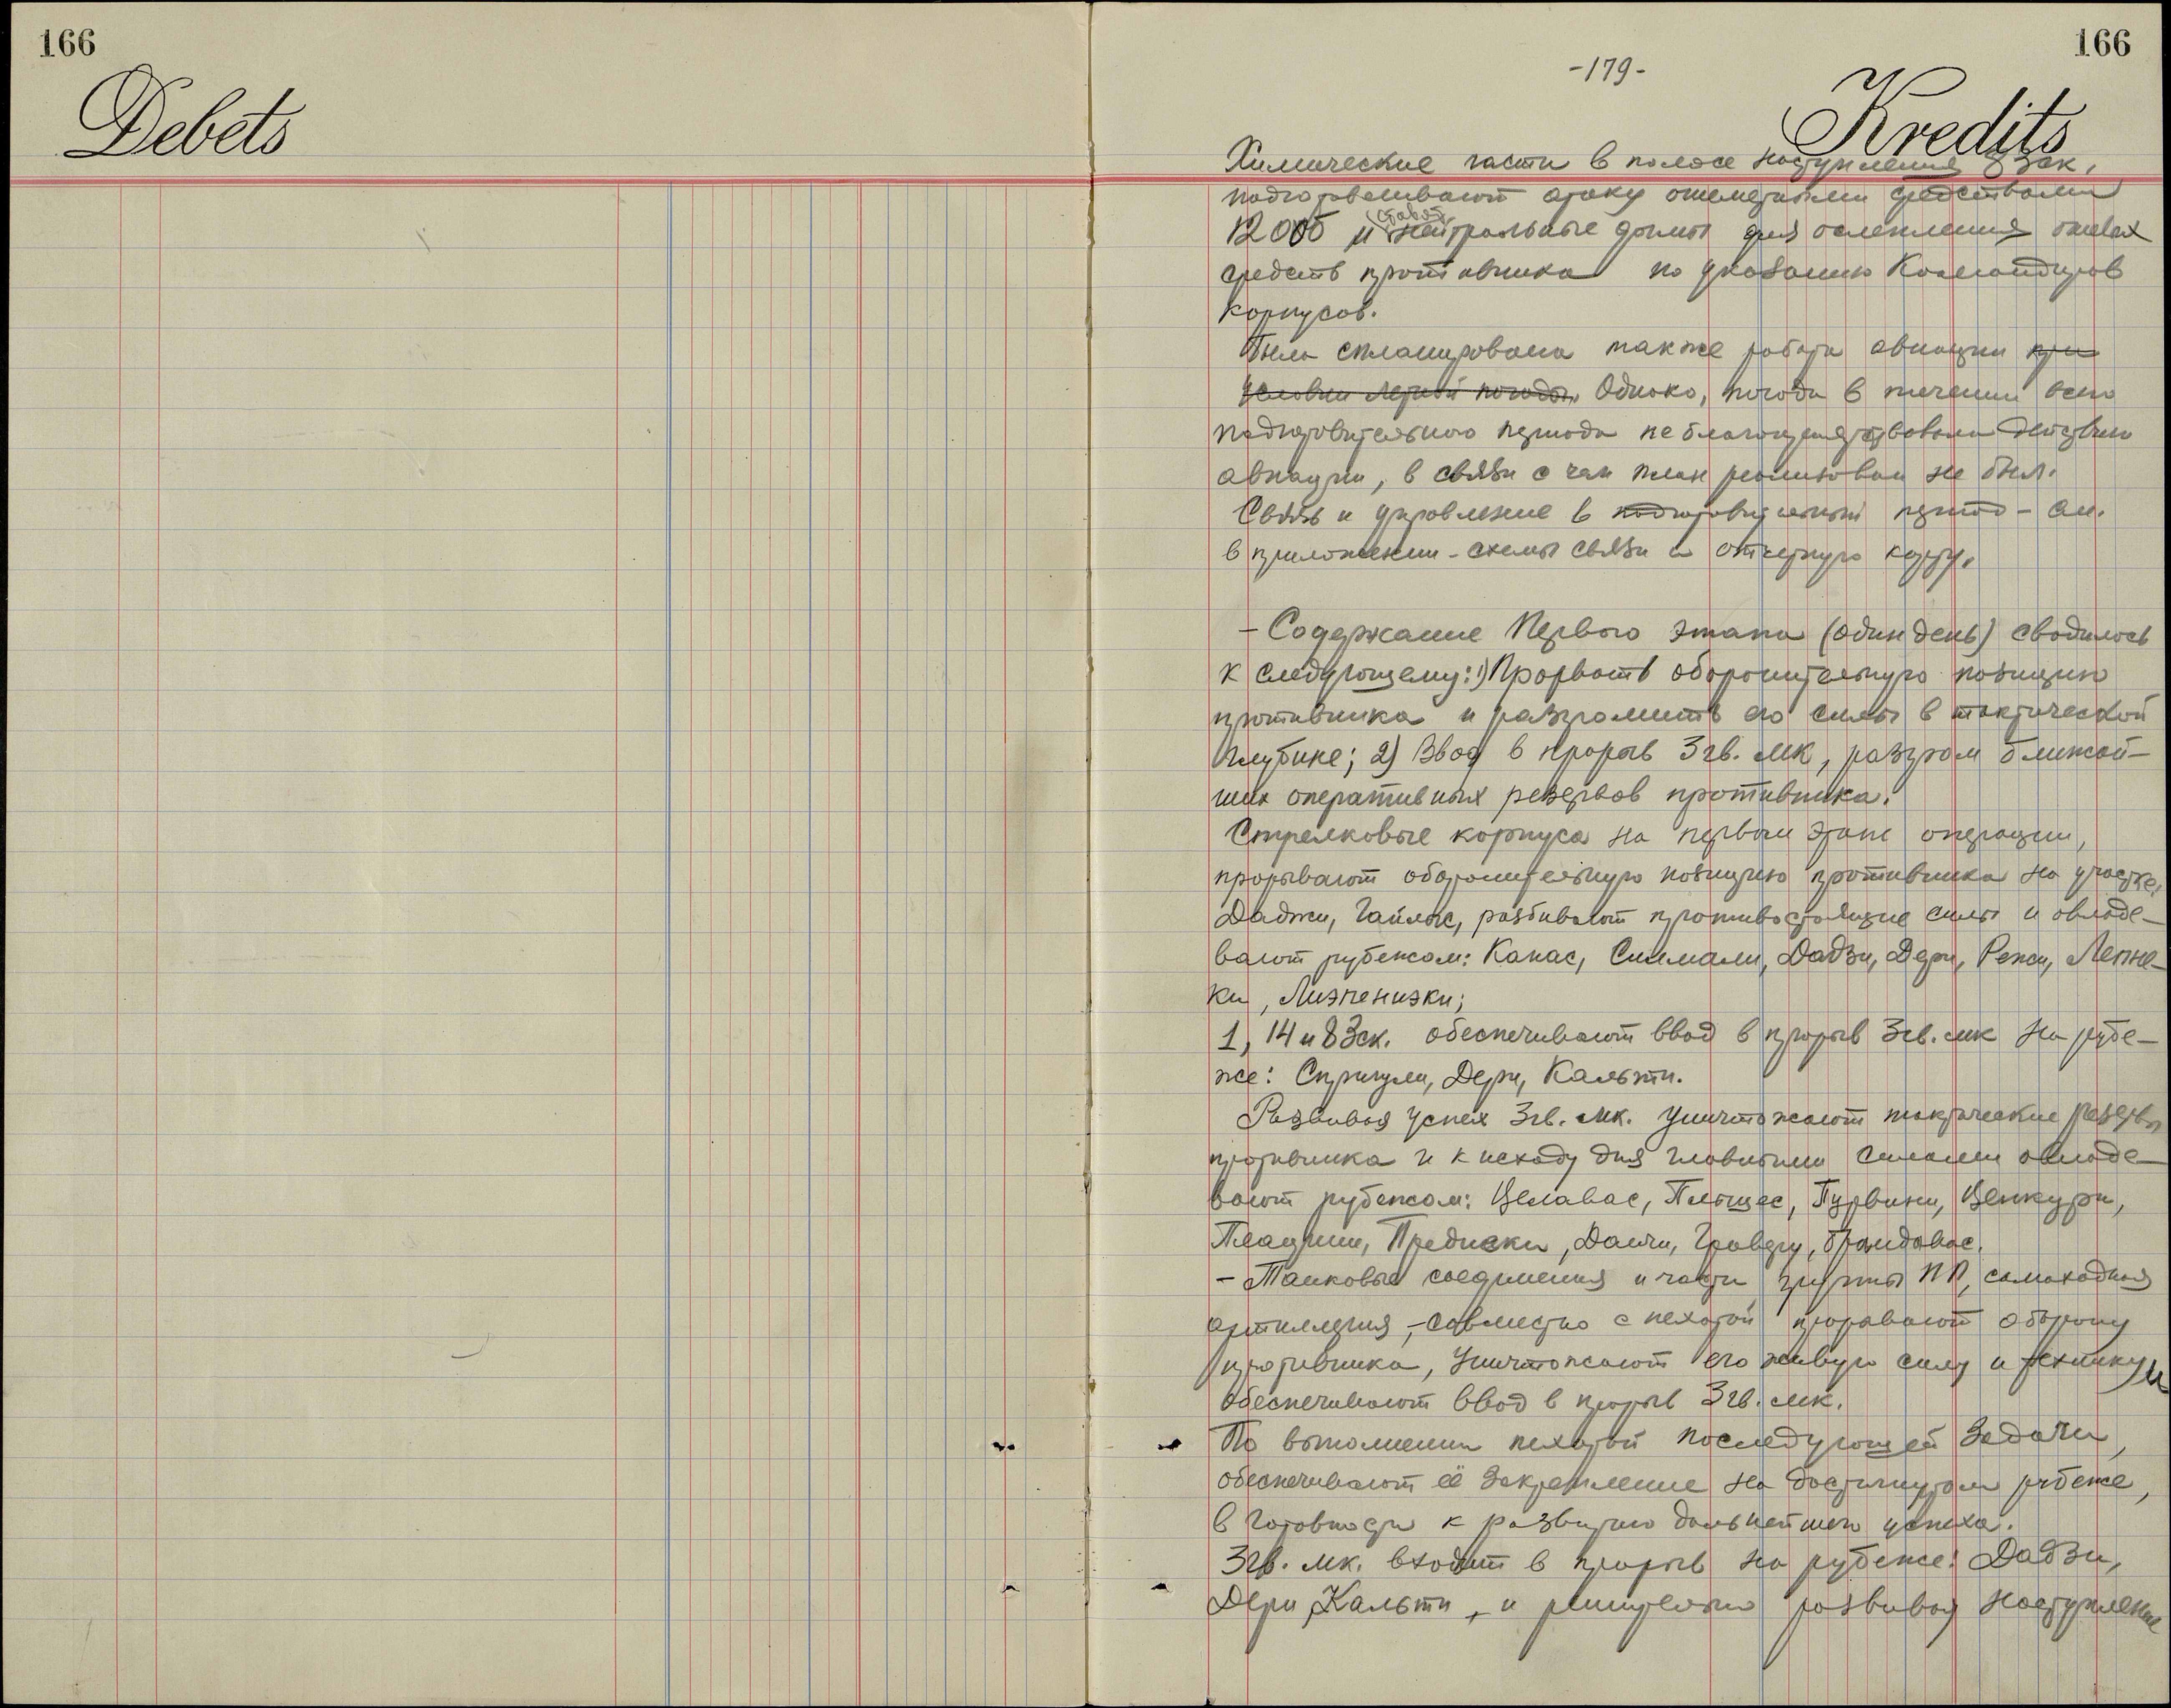 166
Debets
166
-179-
Kredits
Химические части в полосе наступления 83ск,
подготовливают атаку огнеметными средствами
12 ООБ и ставят нейтральные дымы для ослепления огневых
средств противника по указанию Командиров
корпусов.
Была спланирована также работа авиации при
условии летной погоды. Однако, погода в течении всего
подготовительного периода не благоприятствовала действию
авиации, в связи с чем план реализован не был.
Связь и управление в подготовительный период - см.
в приложении - схемы связи и отчетную карту.
- Содержание Первого этапа (один день) сводилось
к следующему: 1) Прорвать оборонительную позицию
противника и разгромить его силы в тактической
глубине; 2) Ввод в прорыв 3 гв. мк, разгром ближай-
ших оперативных резервов противника.
Стрелковые корпуса на первом этапе операции,
прорывают оборонительную позицию противника на участке:
Даджи, Гайлис, разбивают противостоящие силы и овладе-
вают рубежом: Канас, Силмали, Дадзи, Дери, Режи, Лепне-
ки, Лиэпениэки;
1, 14 и 83ск. обеспечивают ввод в прорыв 3гв. мк на рубе-
же: Спрингули, Дери, Кальти.
Развивая успех 3гв. мк. уничтожают тактические резервы
противника и к исходу дня главными силами овладе-
вают рубежом: Целавас, Плыщес, Пурвини, Ценкури,
Плацини, Предиэки, Данчи, Гравери, Брандавас.
- Танковые соединения и части группы ПП, самоходная
артиллерия, - совместно с пехотой прорывают оборону
противника, уничтожают его живую силу и технику и
обеспечивают ввод в прорыв 3 гв. мк.
По выполнении пехотой последующей задачи,
обеспечивают её закрепление на достигнутом рубеже,
в готовности к развитию дальнейшего успеха.
3гв. мк. входит в прорыв на рубеже: Дадзи,
Дери, Кальти, и решительно развивая наступление